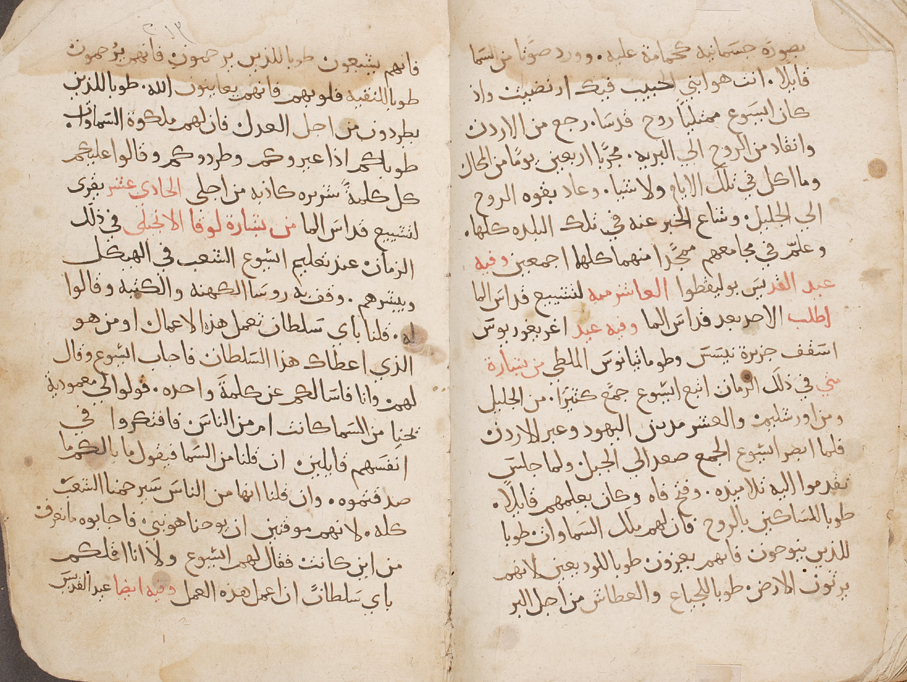 بصورة جسمانيه كحمامة عليه. وورد صوتًا من السما
قايلا. انت هو ابني الحبيب فيك ارتضيت واذ
كان ايسوع ممتلئًا روح قدسا. رجع من الاردن
وانقاد من الروح الي البريه. مجربًا اربعين يومًا من المحال
وما اكل في تلك الايام ولا شيا. وعاد بقوه الروح
الي الجليل. وشاع الخبر عنه في تلك البلده كلها.
وعلم في مجامعهم ممجدا منهما كلها اجمعين وفيه
عيد القديس بوليقطوا العاشر ميه لتشييع قداس الما
اطلب الاحد بعد قداس الما وفيه عيد اغريغوريوس
اسقف جزيرة نيسس وطوماتيانوس الملطي من بشارة
متي في ذلك الزمان اتبع ايسوع جمع كثيرًا. من الجليل
ومن اورشليم والعشر مدين اليهود وعبر الاردن
فلما ابصر ايسوع الجمع صعد الي الجبل. ولما جلس
تقدموا اليه تلاميذه. وفتح فاه وكان يعلمهم قايلًا.
طوبا للمساكين بالروح فان لهم ملك السماوات طوبا
للذين ينوحون فانهم يعزون. طوبا للوديعين لانهم
يرثون الارض. طوبا للجياع والعطاش من اجل البر
فانهم يشبعون طوبا للذين يرحمون فانهم يرحمون
طوبا للنقيه قلوبهم فانهم يعاينون الله. طوبا للذين
يطردون من اجل العدل فان لهم ملكوة السماوات
طوباكم اذا عيروكم وطردوكم وقالوا عليكم
كل كلمة شريره كاذبه من اجلي الحادي عشر يقرى
لتشييع قداس الما من بشارة لوقا الانجيلي في ذلك
الزمان عند تعليم ايسوع الشعب في الهيكل
ويبشرهم. وقف به روسا الكهنه والكتبه وقالوا
له. قلنا باي سلطان تعمل هذه الاعمال او من هو
الذي اعطاك هذا السلطان فاجاب ايسوع وقال
لهم وانا فاسالكم عن كلمة واحده. قولوا لي معمودية
يحيا من السما كانت ام من الناس فافتكروا في
انفسهم قايلين. ان قلنا من السما فيقول ما بالكم ما
صدقتموه. وان قلنا انها من الناس سيرجمنا الشعب
كله. لانهم موقنين ان يوحنا هو نبي. فاجابوه ما نعرف
من اين كانت فقال لهم ايسوع ولا انا اقلكم
باي سلطان اعمل هذه العمل وفيه ايضا عيد القديس